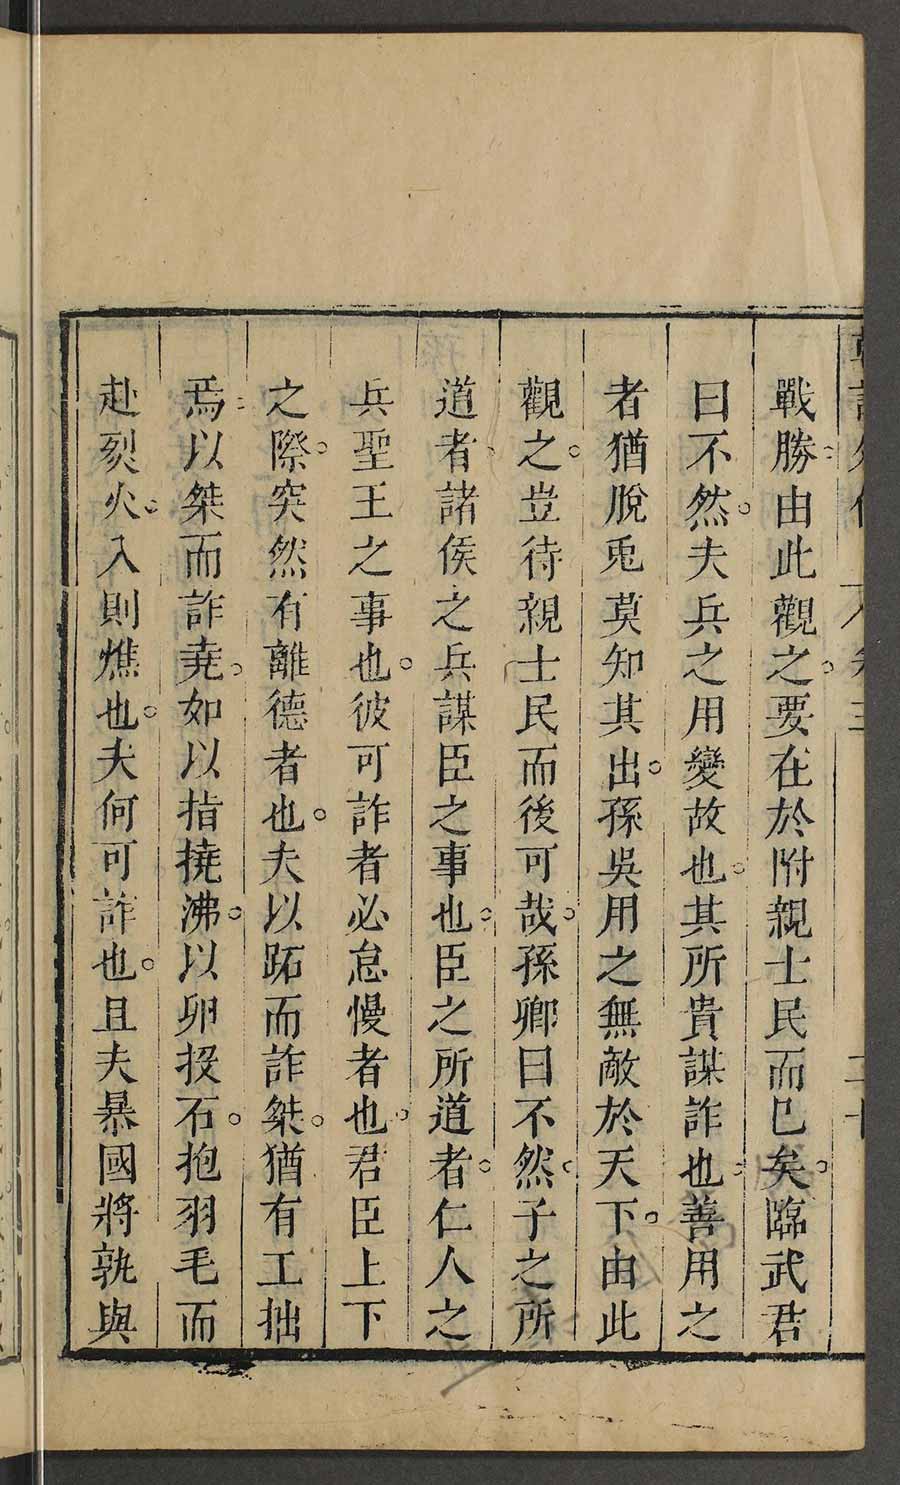 戰勝由此觀之要在於附親士民而已矣臨武君
曰不然夫兵之用變故也其所貴謀詐也善用之
者猶脫兎莫知其出孫吳用之無敵於天下由此
觀之豈待親士民而後可哉孫卿曰不然子之所
道者諸侯之兵謀臣之事也臣之所道者仁人之
兵聖王之事也彼可詐者必怠慢者也君臣上下
之際突然有離德者也夫以跖而詐桀猶有工拙
焉以桀而詐堯如以指撓沸以卵投石抱羽毛而
赴烈火入則燋也夫何可詐也且夫暴國將孰與